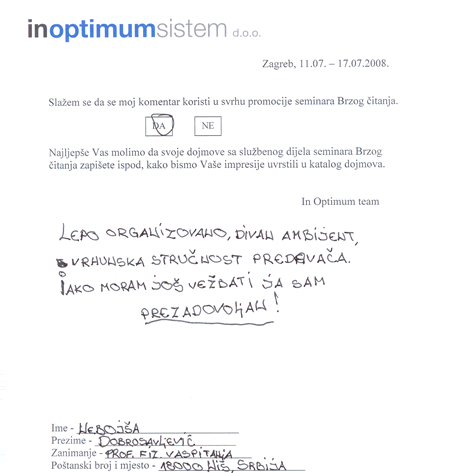 inoptimumsistem d.o.o.
Zagreb, 11.07. – 17.07.2008.
Slažem se da se moj komentar koristi u svrhu promocije seminara Brzog čitanja.
DA NE
Najljepše Vas molimo da svoje dojmove sa službenog dijela seminara Brzog
čitanja zapišete ispod, kako bismo Vaše impresije uvrstili u katalog dojmova.
In Optimum team
LEPO ORGANIZOVANO, DIVAN AMBIJENT,
VRHUNSKA STRUČNOST PREDAVAČA.
IAKO MORAM JOŠ VEŽBATI JA SAM
PREZADOVOLJAN!
Ime - NEBOJŠA
Prezime - DOBROSAVLJEVIĆ
Zanimanje - PROF. FIZ. VASPITANJA
Poštanski broj i mjesto - 18000 NIŠ, SRBIJA